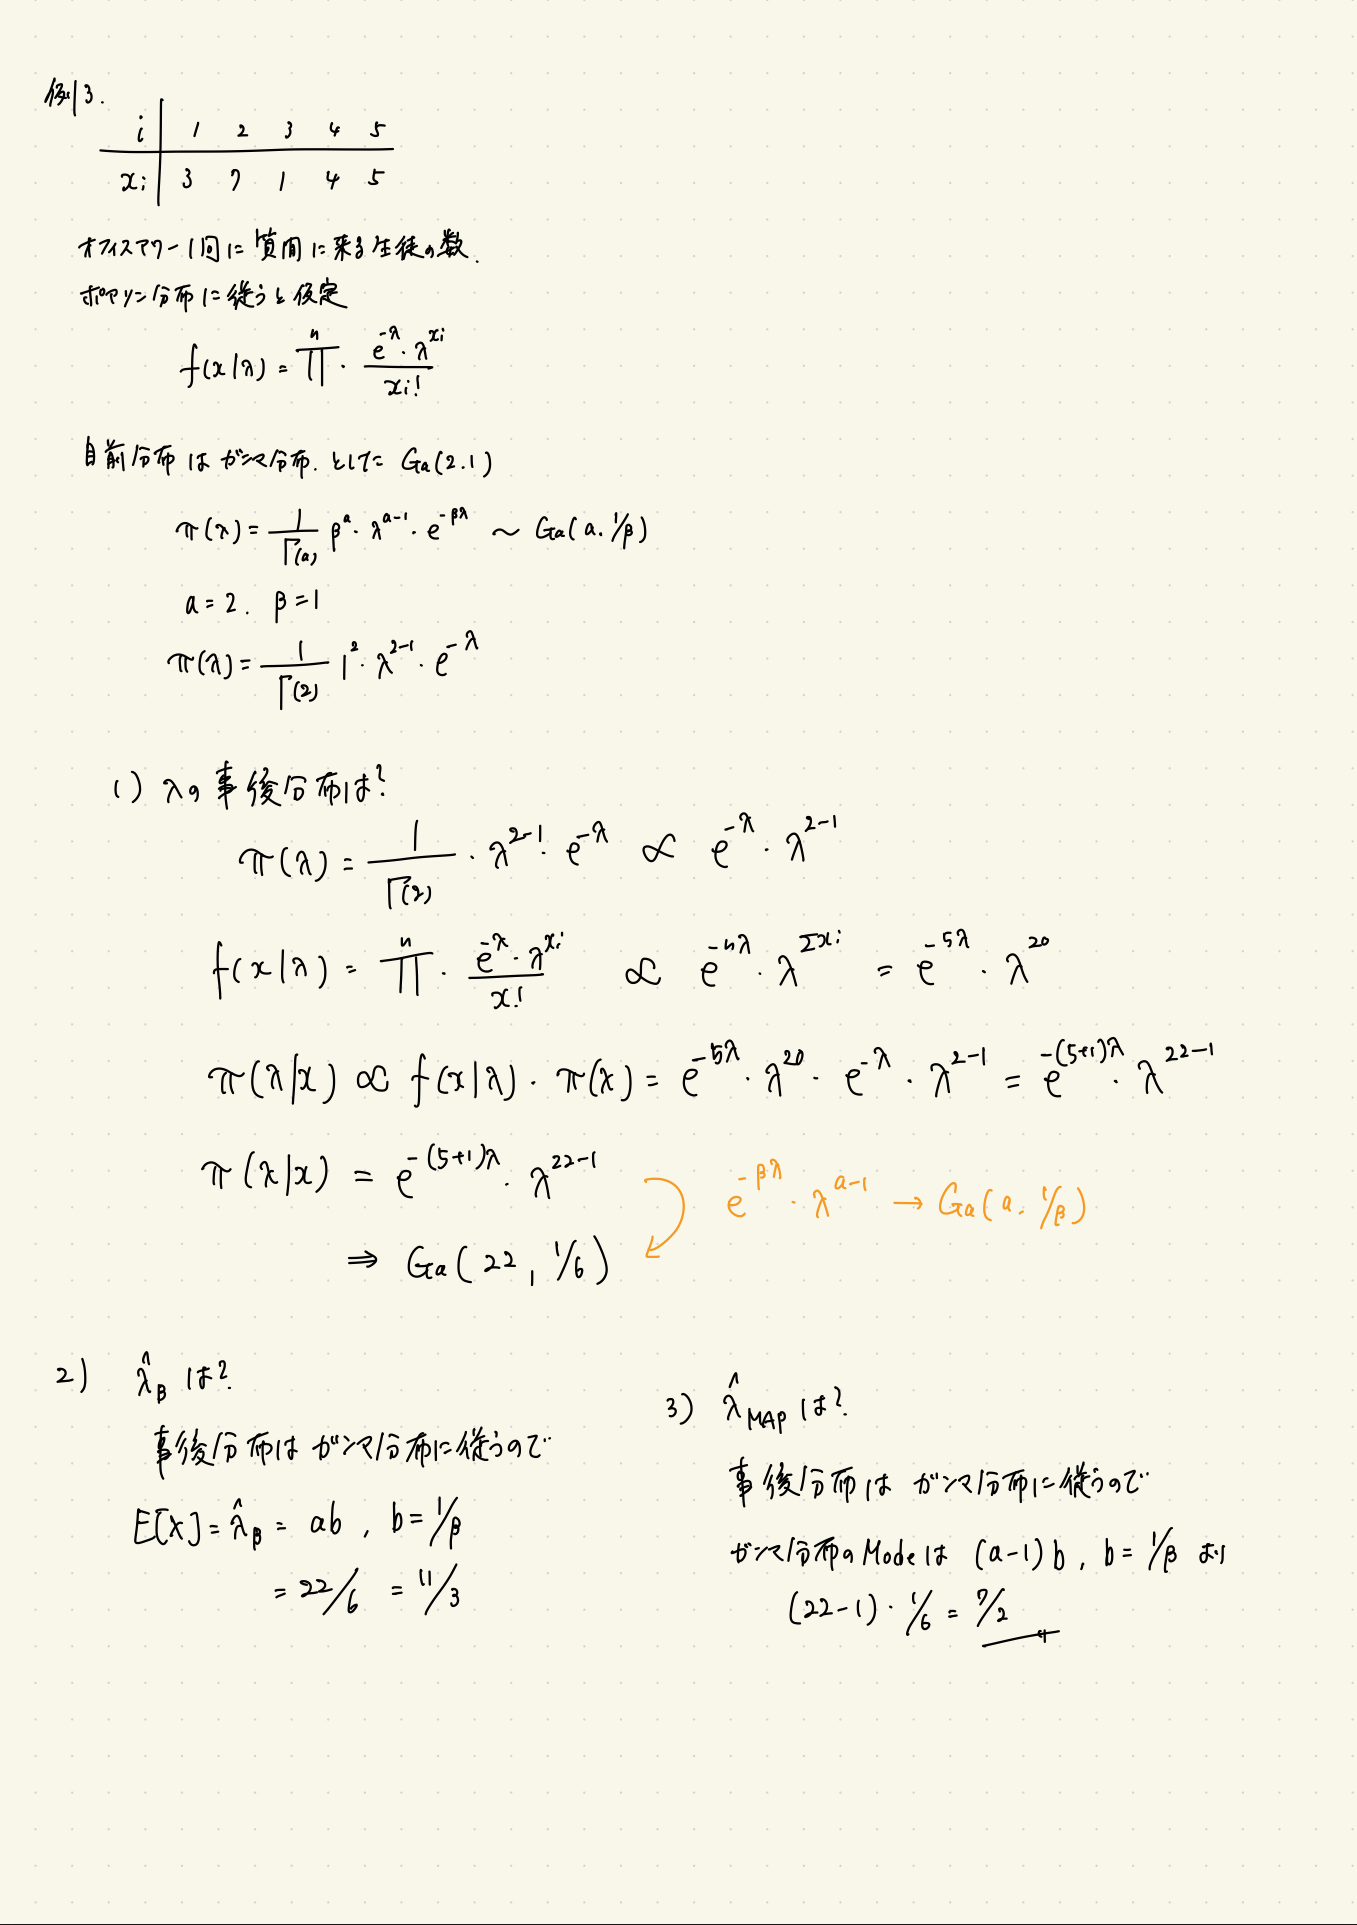 例3.
i | 1 2 3 4 5
xi | 3 7 1 4 5
オフィスアワー1回に質問に来る生徒の数.
ポアソン分布に従うと仮定
f(x|λ) = ∏^n · (e^{-λ} · λ^{xi}) / xi!
自前分布はガンマ分布. として Ga(2.1)
π(λ) = 1/Γ(a) β^a · λ^{a-1} · e^{-βλ} ~ Ga(a. 1/β)
a = 2. β = 1
π(λ) = 1/Γ(2) 1^2 · λ^{2-1} · e^{-λ}
1) λの事後分布は?
π(λ) = 1/Γ(2) · λ^{2-1} · e^{-λ} ∝ e^{-λ} · λ^{2-1}
f(x|λ) = ∏^n · (e^{-λ} · λ^{xi}) / x! ∝ e^{-nλ} · λ^{Σxi} = e^{-5λ} · λ^{20}
π(λ|x) ∝ f(x|λ) · π(λ) = e^{-5λ} · λ^{20} · e^{-λ} · λ^{2-1} = e^{-(5+1)λ} · λ^{22-1}
π(λ|x) = e^{-(5+1)λ} · λ^{22-1}
e^{-βλ} · λ^{a-1} → Ga(a. 1/β)
⇒ Ga(22, 1/6)
2) λ̂_B は?
事後分布はガンマ分布に従うので
E[X] = λ̂_B = ab , b = 1/β
= 22/6 = 11/3
3) λ̂_MAP は?
事後分布はガンマ分布に従うので
ガンマ分布のModeは (a-1)b , b = 1/β より
(22-1) · 1/6 = 7/2